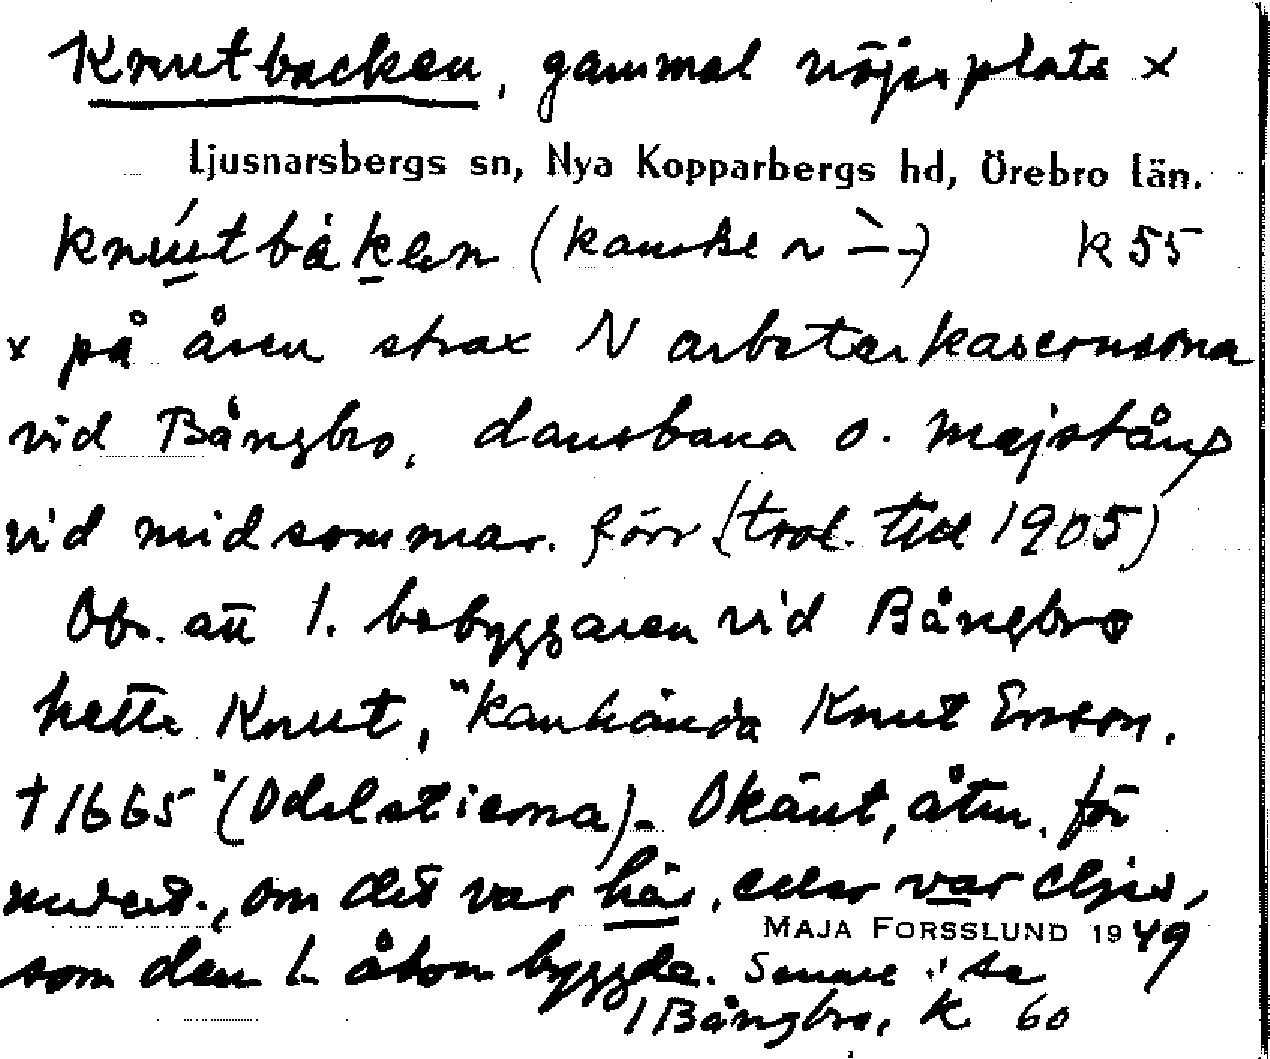 Knutbacken, gammal nöjesplats x
Ljusnarsbergs sn, Nya Kopparbergs hd, Örebro län.
knútbàkan (kanske ~ ̀ – -) k 55
x på åsen strax N arbetarkasernerna
vid Bångbro, dansbana o. majstång
vid midsommar. förr (trol. till 1905)
Obs. att 1. bebyggaren vid Bångbro
hette Knut, "kanhända Knut Ersson.
† 1665" (Odelstierna). Okänt, åtm. för
om det var här, eller var eljes,
som den 1. åbon byggde. Senare: se
MAJA FORSSLUND 1949
/ Bångbro, k 60